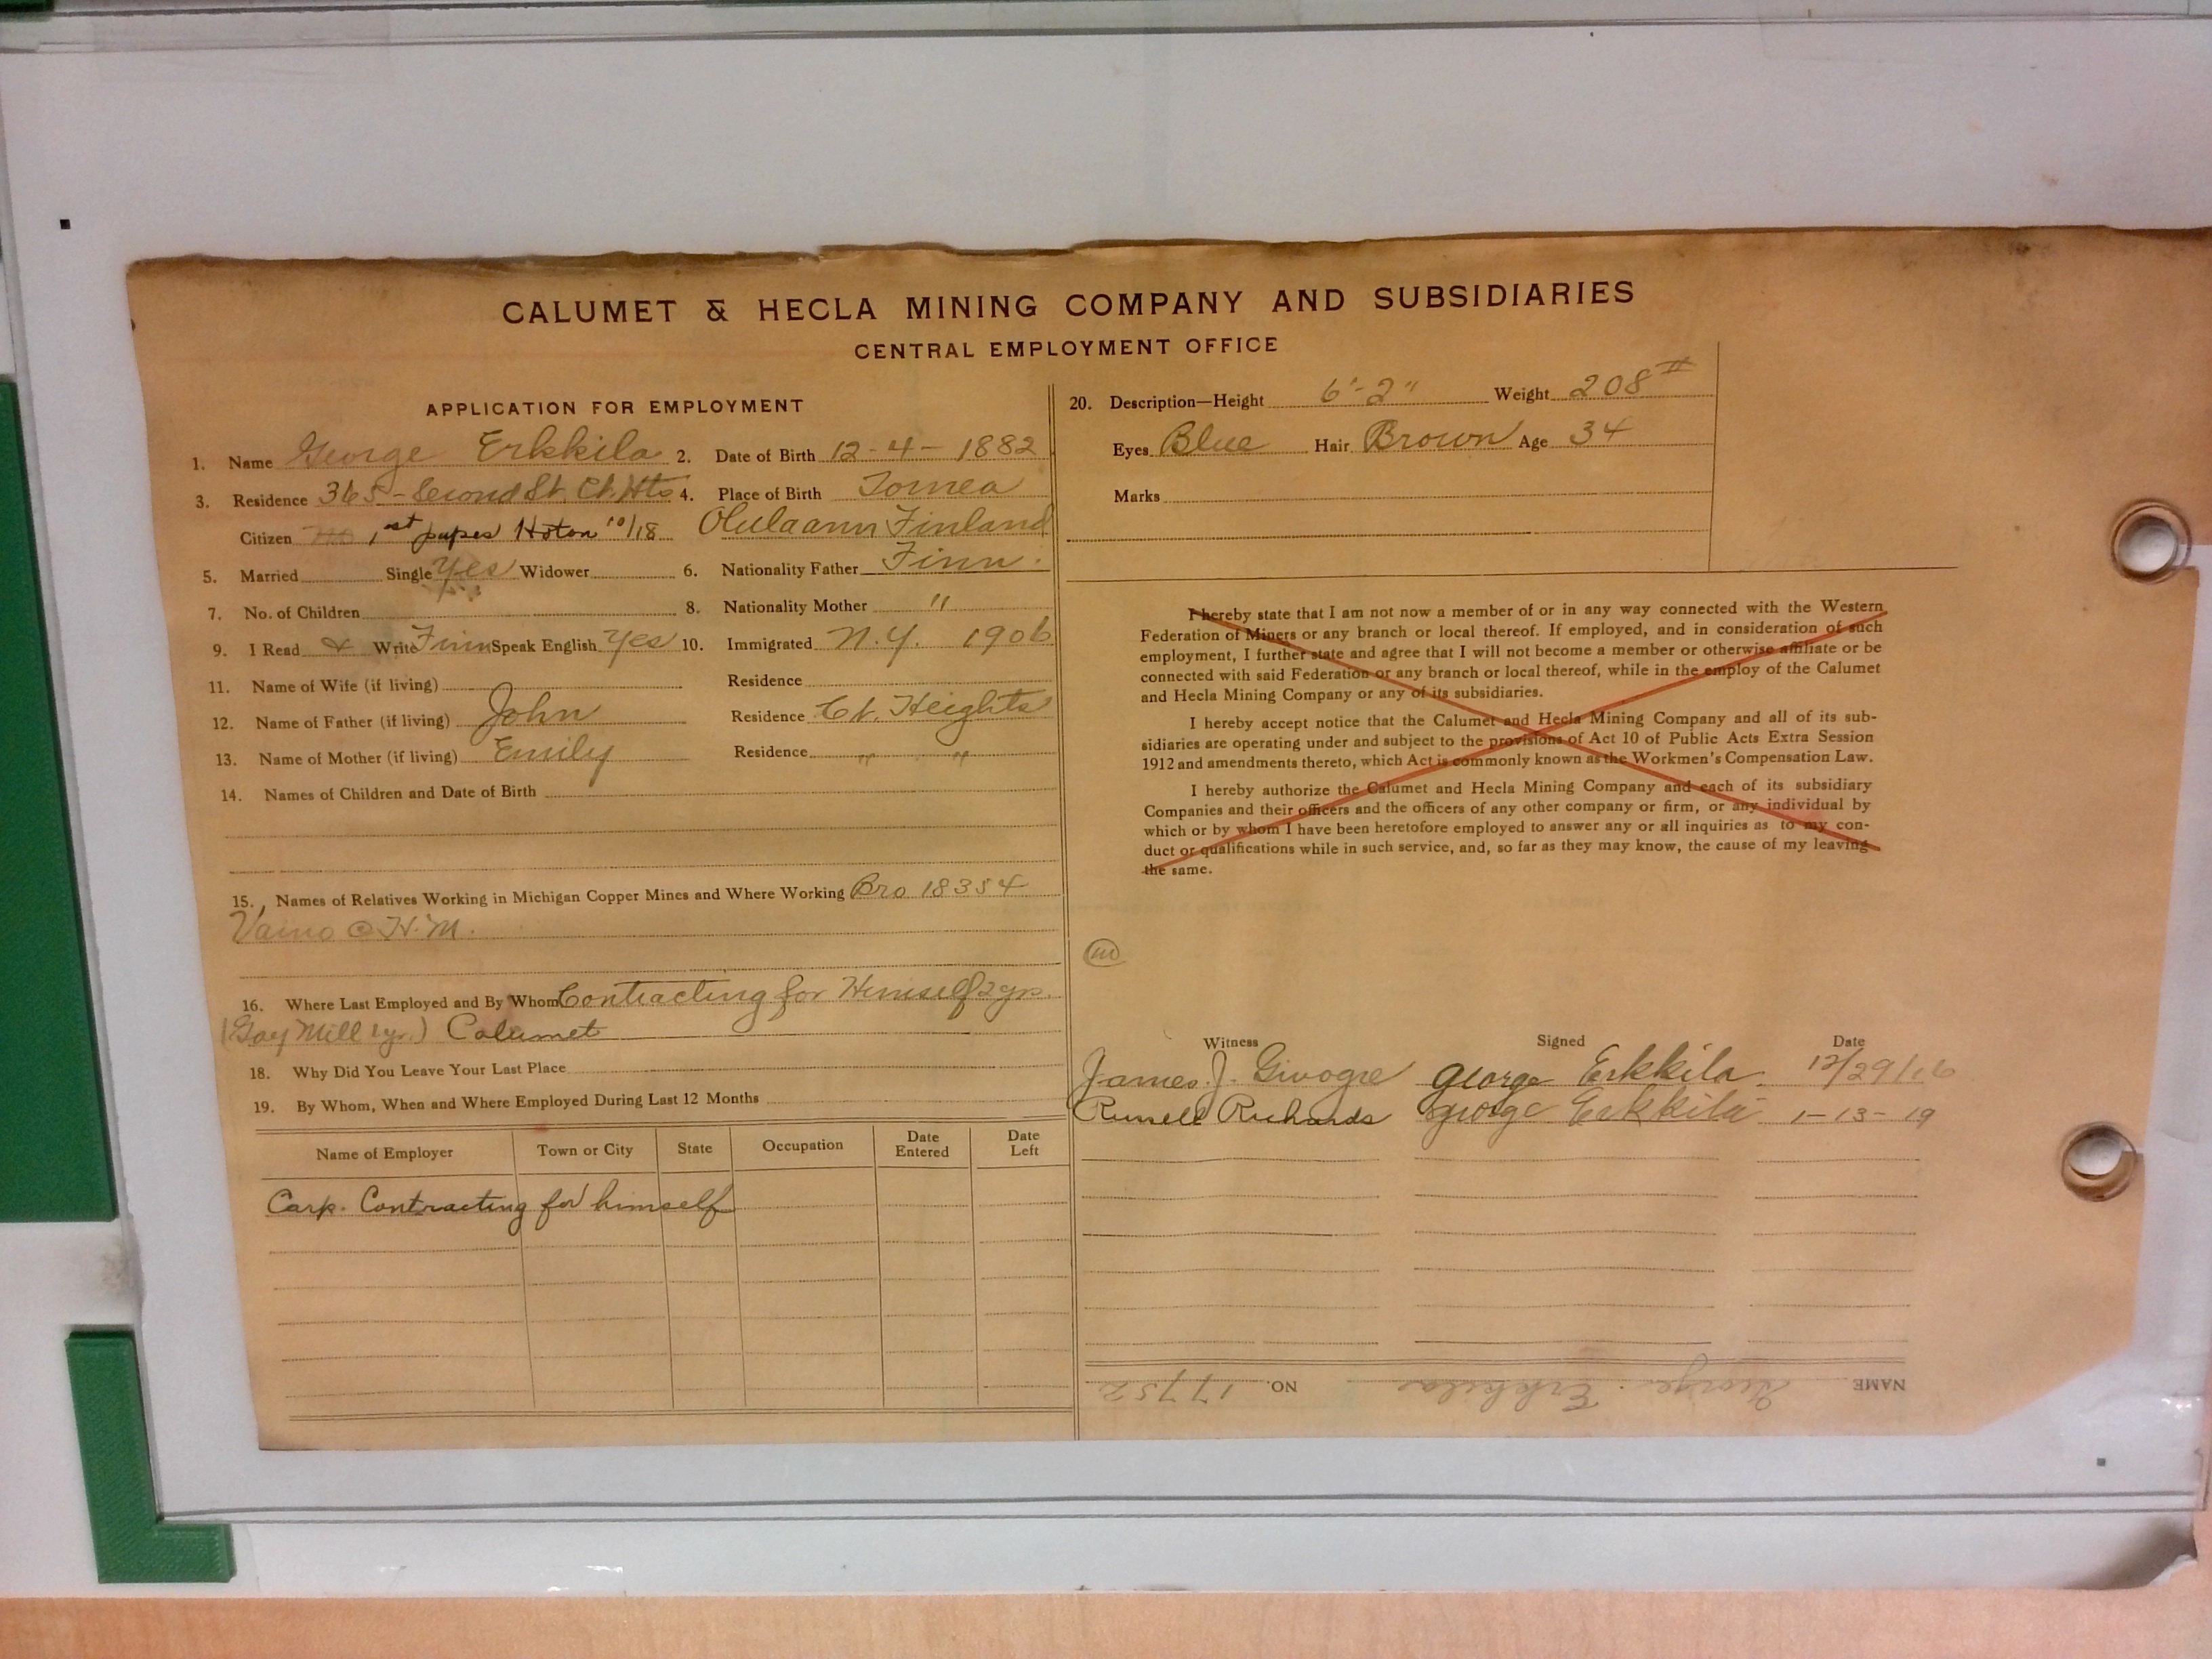 CALUMET & HECLA MINING COMPANY AND SUBSIDIARIES
CENTRAL EMPLOYMENT OFFICE
APPLICATION FOR EMPLOYMENT
1. Name George Erkkila 2. Date of Birth 12-4-1882
3. Residence 365-Second St. Ct. Hts 4. Place of Birth Tornea
Citizen 1st papes Hoton 10/18 Finland
5. Married Single Yes Widower 6. Nationality Father Finn.
7. No. of Children 8. Nationality Mother "
9. I Read & Write Finn Speak English Yes 10. Immigrated N.Y. 1906
11. Name of Wife (if living) Residence
12. Name of Father (if living) John Residence Ct. Heights
13. Name of Mother (if living) Emily Residence " "
14. Names of Children and Date of Birth
15. Names of Relatives Working in Michigan Copper Mines and Where Working Bro 18354
Vaino C H.M.
16. Where Last Employed and By Whom Contracting for Himself 2 yrs.
(Gay Mill 1 yr.) Calumet
18. Why Did You Leave Your Last Place
19. By Whom, When and Where Employed During Last 12 Months
Name of Employer Town or City State Occupation Date Entered Date Left
Carp. Contracting for himself
20. Description—Height 6'-2" Weight 208#
Eyes Blue Hair Brown Age 34
Marks
I hereby state that I am not now a member of or in any way connected with the Western
Federation of Miners or any branch or local thereof. If employed, and in consideration of such
employment, I further state and agree that I will not become a member or otherwise affiliate or be
connected with said Federation or any branch or local thereof, while in the employ of the Calumet
and Hecla Mining Company or any of its subsidiaries.
I hereby accept notice that the Calumet and Hecla Mining Company and all of its sub-
sidiaries are operating under and subject to the provisions of Act 10 of Public Acts Extra Session
1912 and amendments thereto, which Act is commonly known as the Workmen's Compensation Law.
I hereby authorize the Calumet and Hecla Mining Company and each of its subsidiary
Companies and their officers and the officers of any other company or firm, or any individual by
which or by whom I have been heretofore employed to answer any or all inquiries as to my con-
duct or qualifications while in such service, and, so far as they may know, the cause of my leaving
the same.
Witness Signed Date
James J. George Erkkila 12/29/16
Russell Richards George Erkkila 1-13-19
NAME George Erkkila NO. 17752